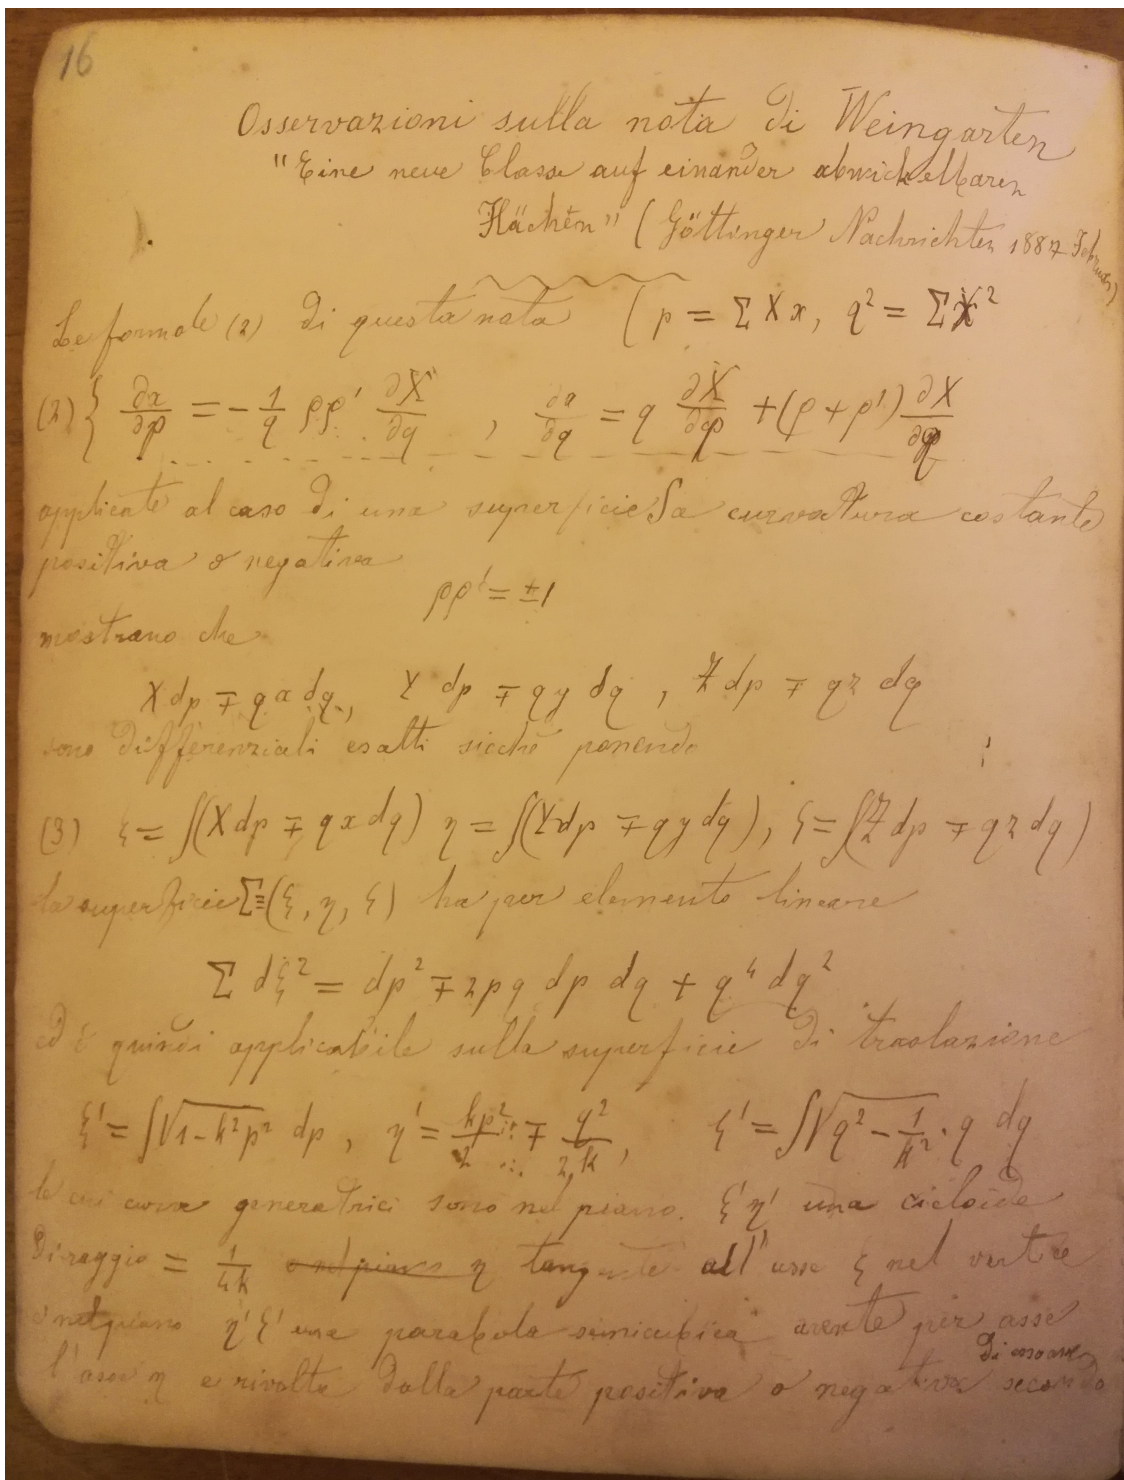 16
Osservazioni sulla nota di Weingarten
"Eine neue Classe auf einander abwickelbaren
Flächen" (Göttinger Nachrichten 1887 Februar)
Le formole (2) di questa nota ( p = Σ X x, q² = Σ x²
(2) { ∂x/∂p = - 1/q ρρ' ∂X/∂q , ∂x/∂q = q ∂X/∂p + (ρ + ρ') ∂X/∂q
applicate al caso di una superficie S a curvatura costante
positiva o negativa
ρρ' = ±1
mostrano che
X dp ∓ q x dq, Y dp ∓ q y dq , Z dp ∓ q z dq
sono differenziali esatti sicchè ponendo
(3) ξ = ∫(X dp ∓ q x dq) η = ∫(Y dp ∓ q y dq), ζ = ∫(Z dp ∓ q z dq)
la superficie Σ ≡ (ξ, η, ζ) ha per elemento lineare
Σ dξ² = dp² ∓ 2pq dp dq + q⁴ dq²
ed è quindi applicabile sulla superficie di traslazione
ξ' = ∫√1 - k²p² dp , η' = kp²/2 ∓ q²/2k , ζ' = ∫√q² - 1/k² · q dq
le cui curve generatrici sono nel piano ξ'η' una cicloide
di raggio = 1/4k tangente all' asse ξ nel vertice
e nel piano η'ζ' una parabola semicubica avente per asse
l'asse η e rivolta dalla parte positiva o negativa di esso asse secondo